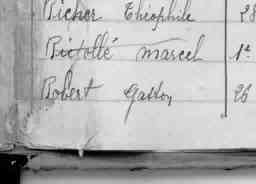 Richer Théophile 28
Rifollé Marcel 1e
Robert Gaston 26